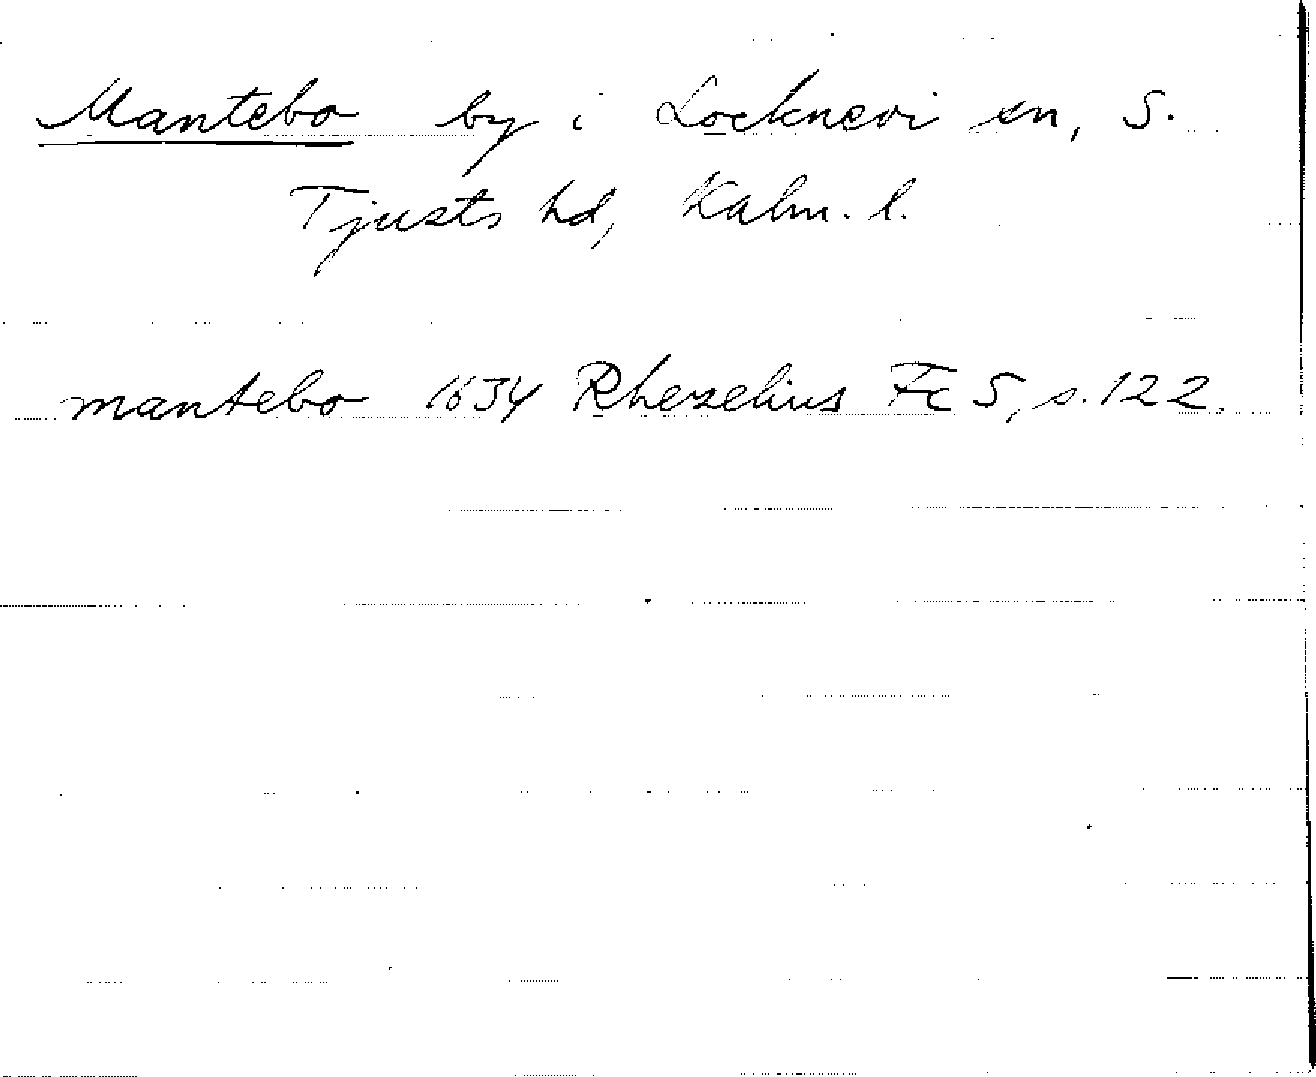 Mantebo by i Locknevi sn, S.
Tjusts hd, Kalm. l.
mantebo 1634 Rhezelius Fc 5, s. 122.